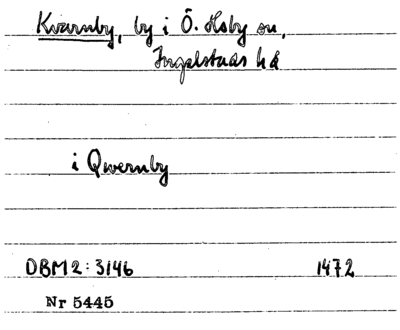 Kvarnby, by i Ö. Hoby sn,
Ingelstads hd
i Qwernby
DBM 2: 3146 1472
Nr 5445